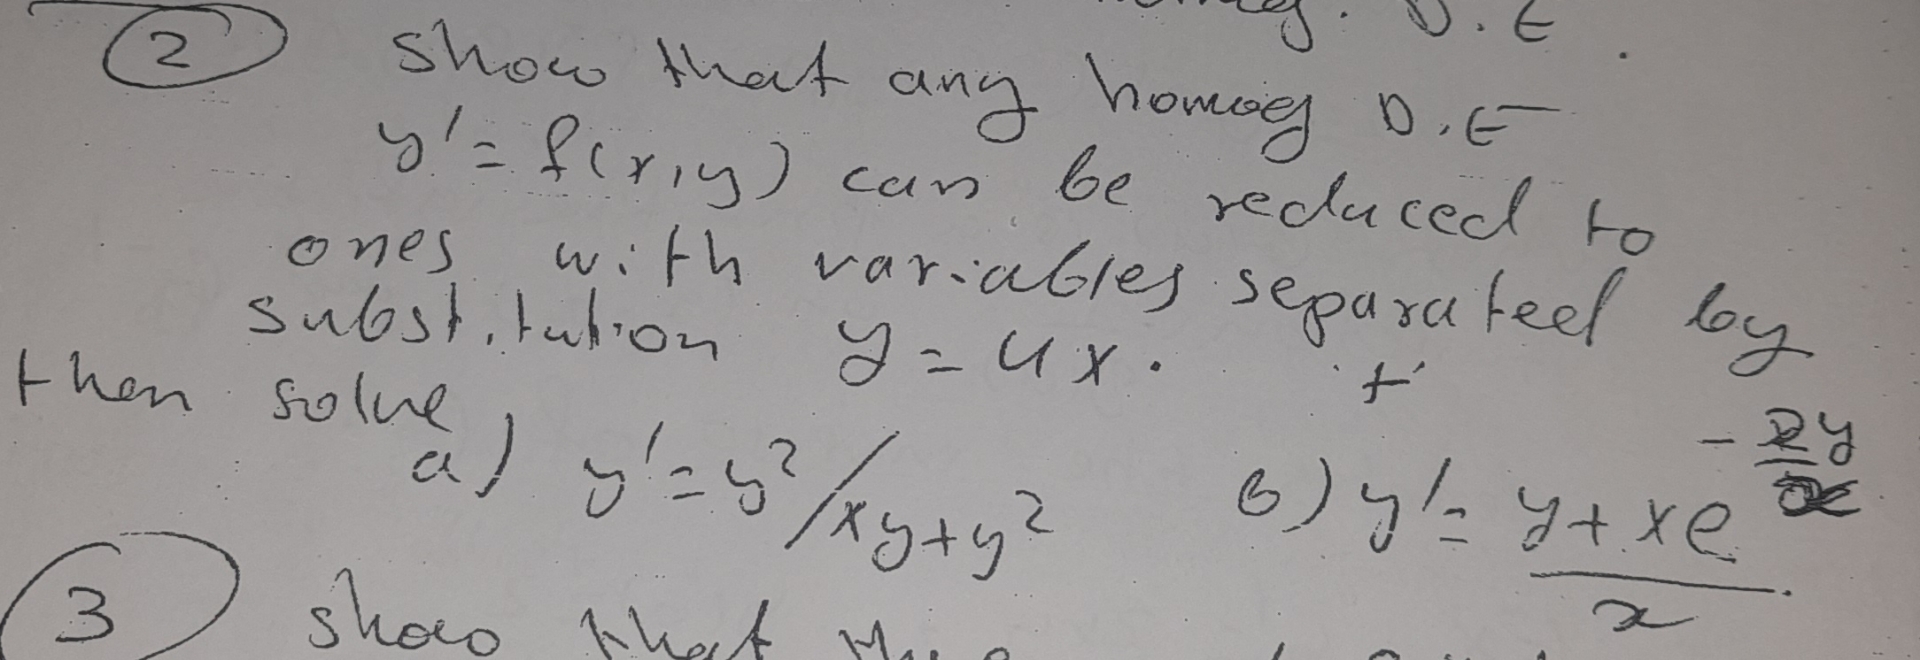 D.E.
2 show that any homog D.E
y' = f(x,y) can be reduced to
ones with variables separated by
substitution y = ux.
then solve
a) y' = y²/xy+y² b) y' = y + xe^(-2y/x) / x
3 show that